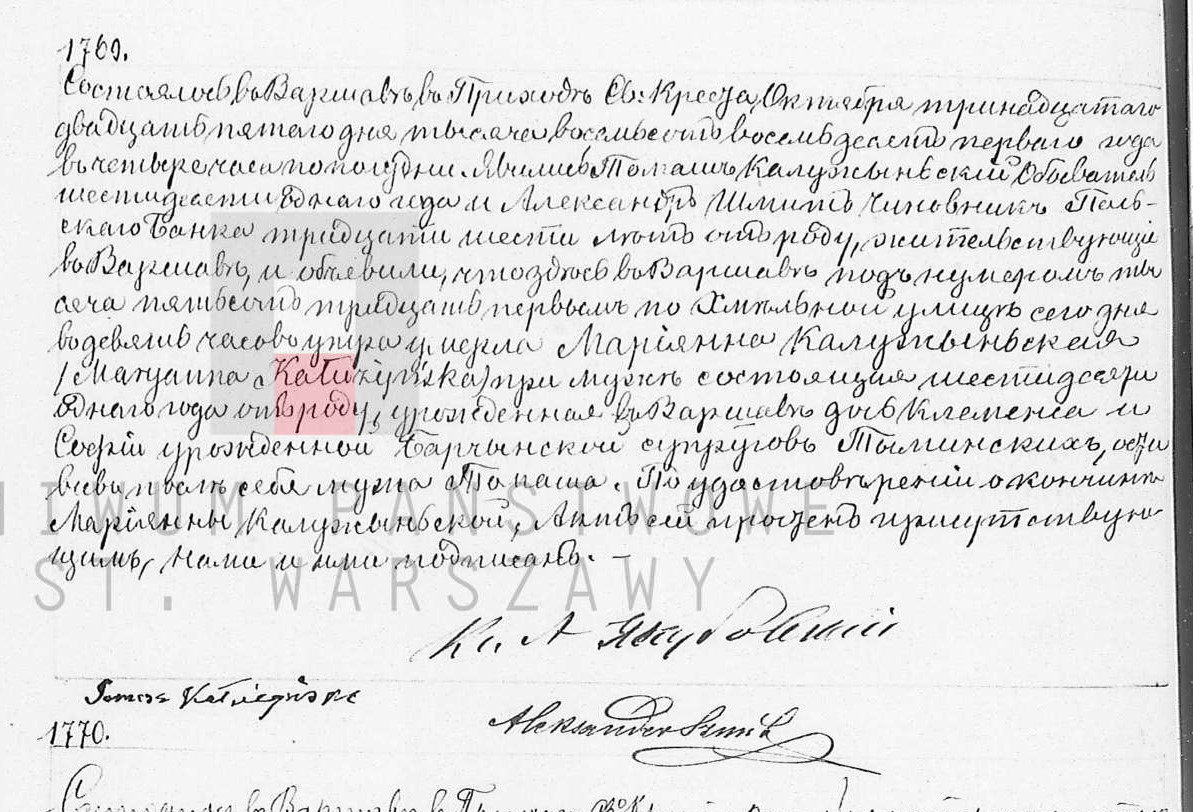 1769.
Состоялось въ Варшавѣ въ Приходѣ Св: Креста, Октября тринадцатаго
двадцать пятаго дня тысяча восемьсотъ восемьдесятъ перваго года
въ четыре часа по полудни. Явились Томашъ Калужыньскій Обыватель
шестидесяти однаго года и Александръ Шмитъ Чиновникъ Поль-
скаго Банка тридцати шести лѣтъ отъ роду, жительствующіе
въ Варшавѣ, и объявили, что здѣсь въ Варшавѣ подъ нумеромъ ты
сяча пятьсотъ тридцать первымъ по Хмѣльной улицѣ сего дня
въ девять часовъ утра умерла Маріянна Калужыньская
/Maryanna Kałużyńska/ при мужѣ состоящая шестидесяти
однаго года отъ роду, урожденная въ Варшавѣ дочь Клеменса и
Софіи урожденной Барчынской супруговъ Тыминскихъ, оста
вивъ по себѣ мужа Томаша. По удостовѣреніи о кончинѣ
Маріянны Калужыньской, Актъ сей прочтенъ присутствую-
щимъ, нами и ими подписанъ. —
HIWUM PAŃSTWOWE
ST. WARSZAWY
Кс. А Якубовскій
Tomasz Kałużyński
Aleksander Szmit
1770.